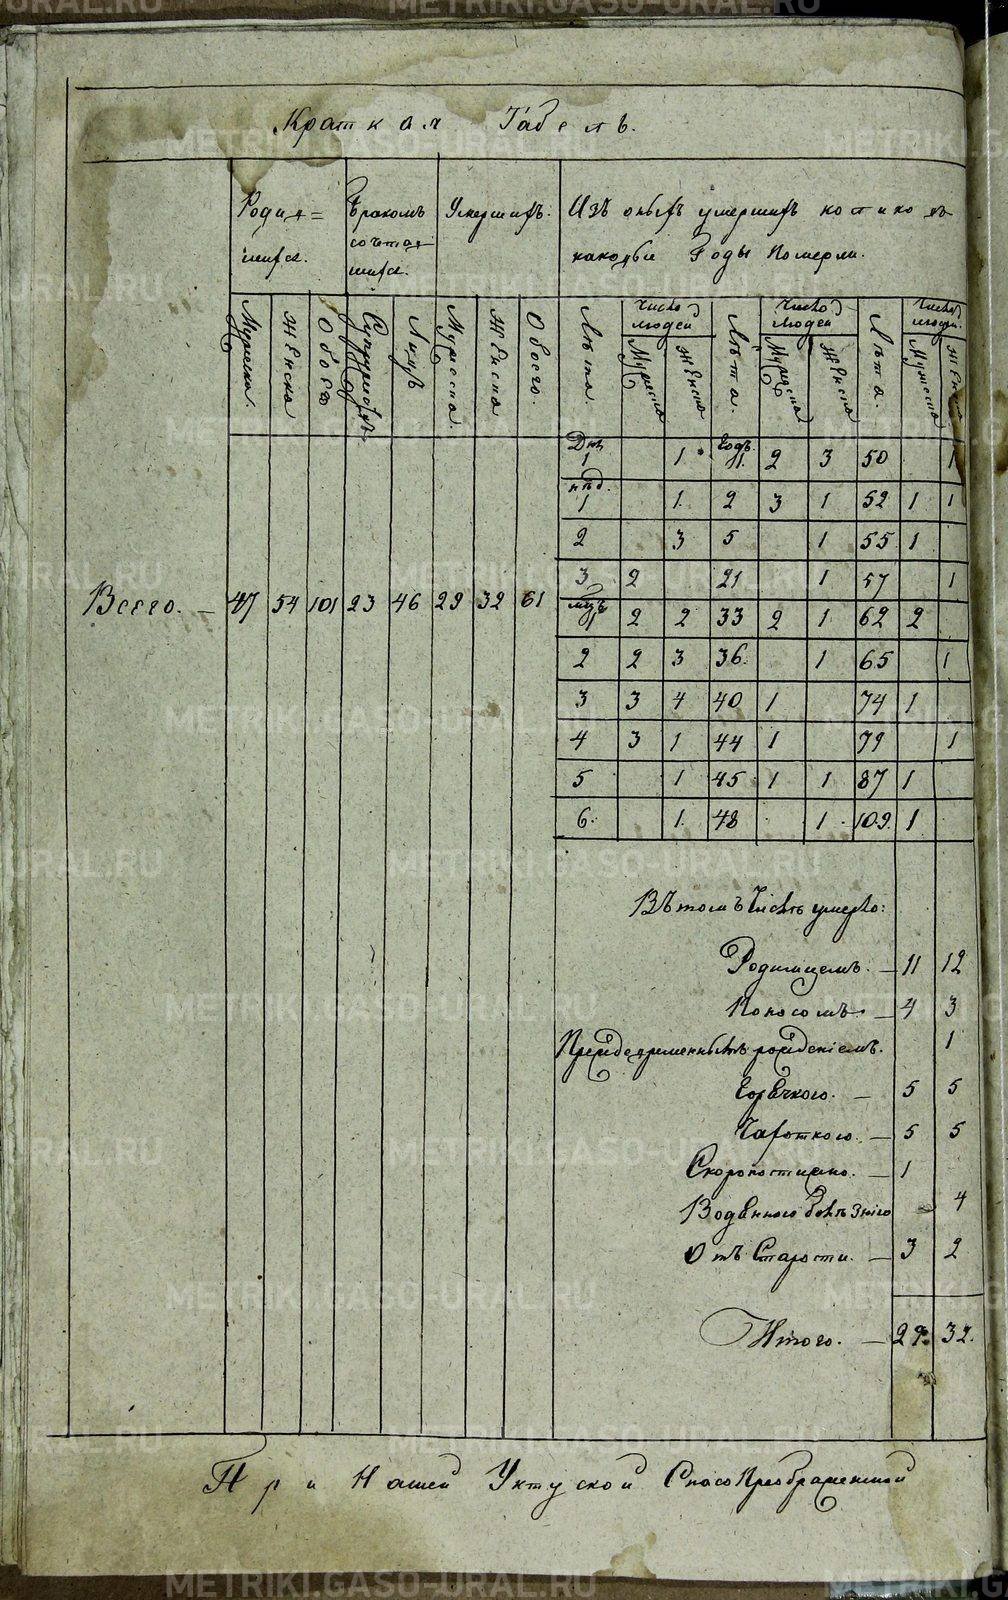 METRIKI.GASO-URAL.RU
Краткая Табель.
Родив=
шихся.
Бракомъ
сочетав
шихся.
Умершихъ.
Изъ оныхъ умершихъ по сколько въ
каковые Годы Померли.
Мужеска. Женска Обоего Супружествъ Лицъ Мужеска. Женска Обоего.
Лѣта. Число людей Мужеска Женска Лѣта. Число людей Мужеска Женска Лѣта. Число людей. Мужеска Женска
Дни 1 1 Годъ 1. 2 3 50 1
нѣд. 1 1 2 3 1 52 1 1
2 3 5 1 55 1
3 2 21 1 57 1
Всего. — 47 54 101 23 46 29 32 61
мцъ 1 2 2 33 2 1 62 2
2 2 3 36. 1 65 1
3 3 4 40 1 74 1
4 3 1 44 1 79 1
5 1 45 1 1 87 1
6. 1 48 1 109. 1
Въ томъ Числѣ умерло:
Родимцемъ. — 11 12
Поносомъ — 4 3
Преждевременнымъ рожденіемъ. 1
Горячкою. — 5 5
Чахоткою. — 5 5
Скоропостижно. — 1
Водяною болѣзнію 4
Отъ Старости. — 3 2
Итого. — 29. 32.
При Нашей Уктуской Спасо Преображенской